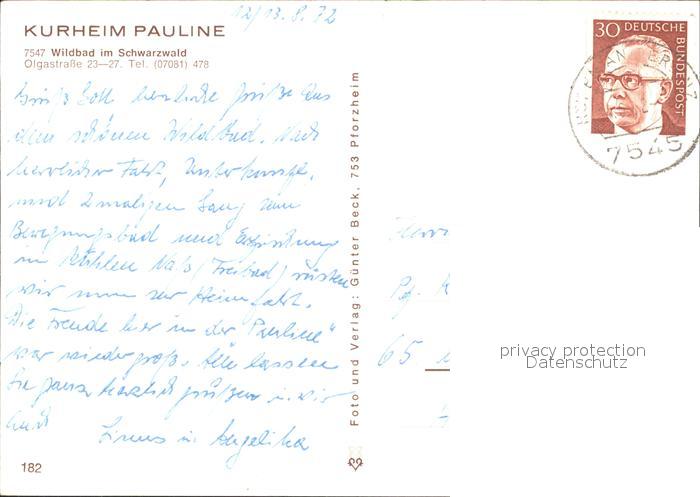 12/13.8.72
KURHEIM PAULINE
7547 Wildbad im Schwarzwald
Olgastraße 23—27. Tel. (07081) 478
Grüß Gott herzliche Grüße aus
dem schönen Wildbad. Nach
herrlicher Fahrt, Unterkunft,
und 2maligen Gang zum
Bewegungsbad und Erfrischung
im kühlen Naß (Freibad) rüsten
wir nun zur Heimfahrt.
Die Freude hier in der "Pauline"
war wieder groß. Alle lassen
Sie ganz herzlich grüßen u. wir
auch
Linus u. Angelika
182
Foto und Verlag: Günter Beck, 753 Pforzheim
30 DEUTSCHE BUNDESPOST
7545
Herr
65
privacy protection
Datenschutz